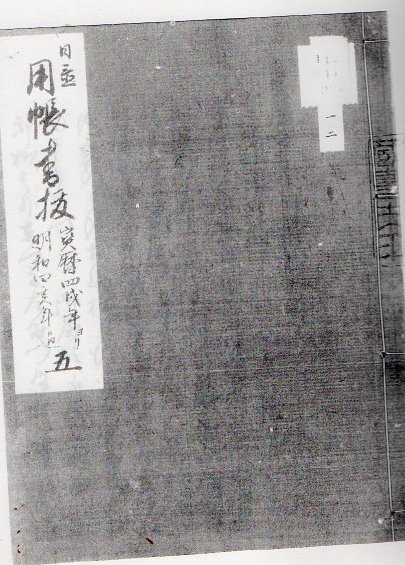 日並
用帳書抜
寳暦四戌年ヨリ
明和四亥年迄
五
一二